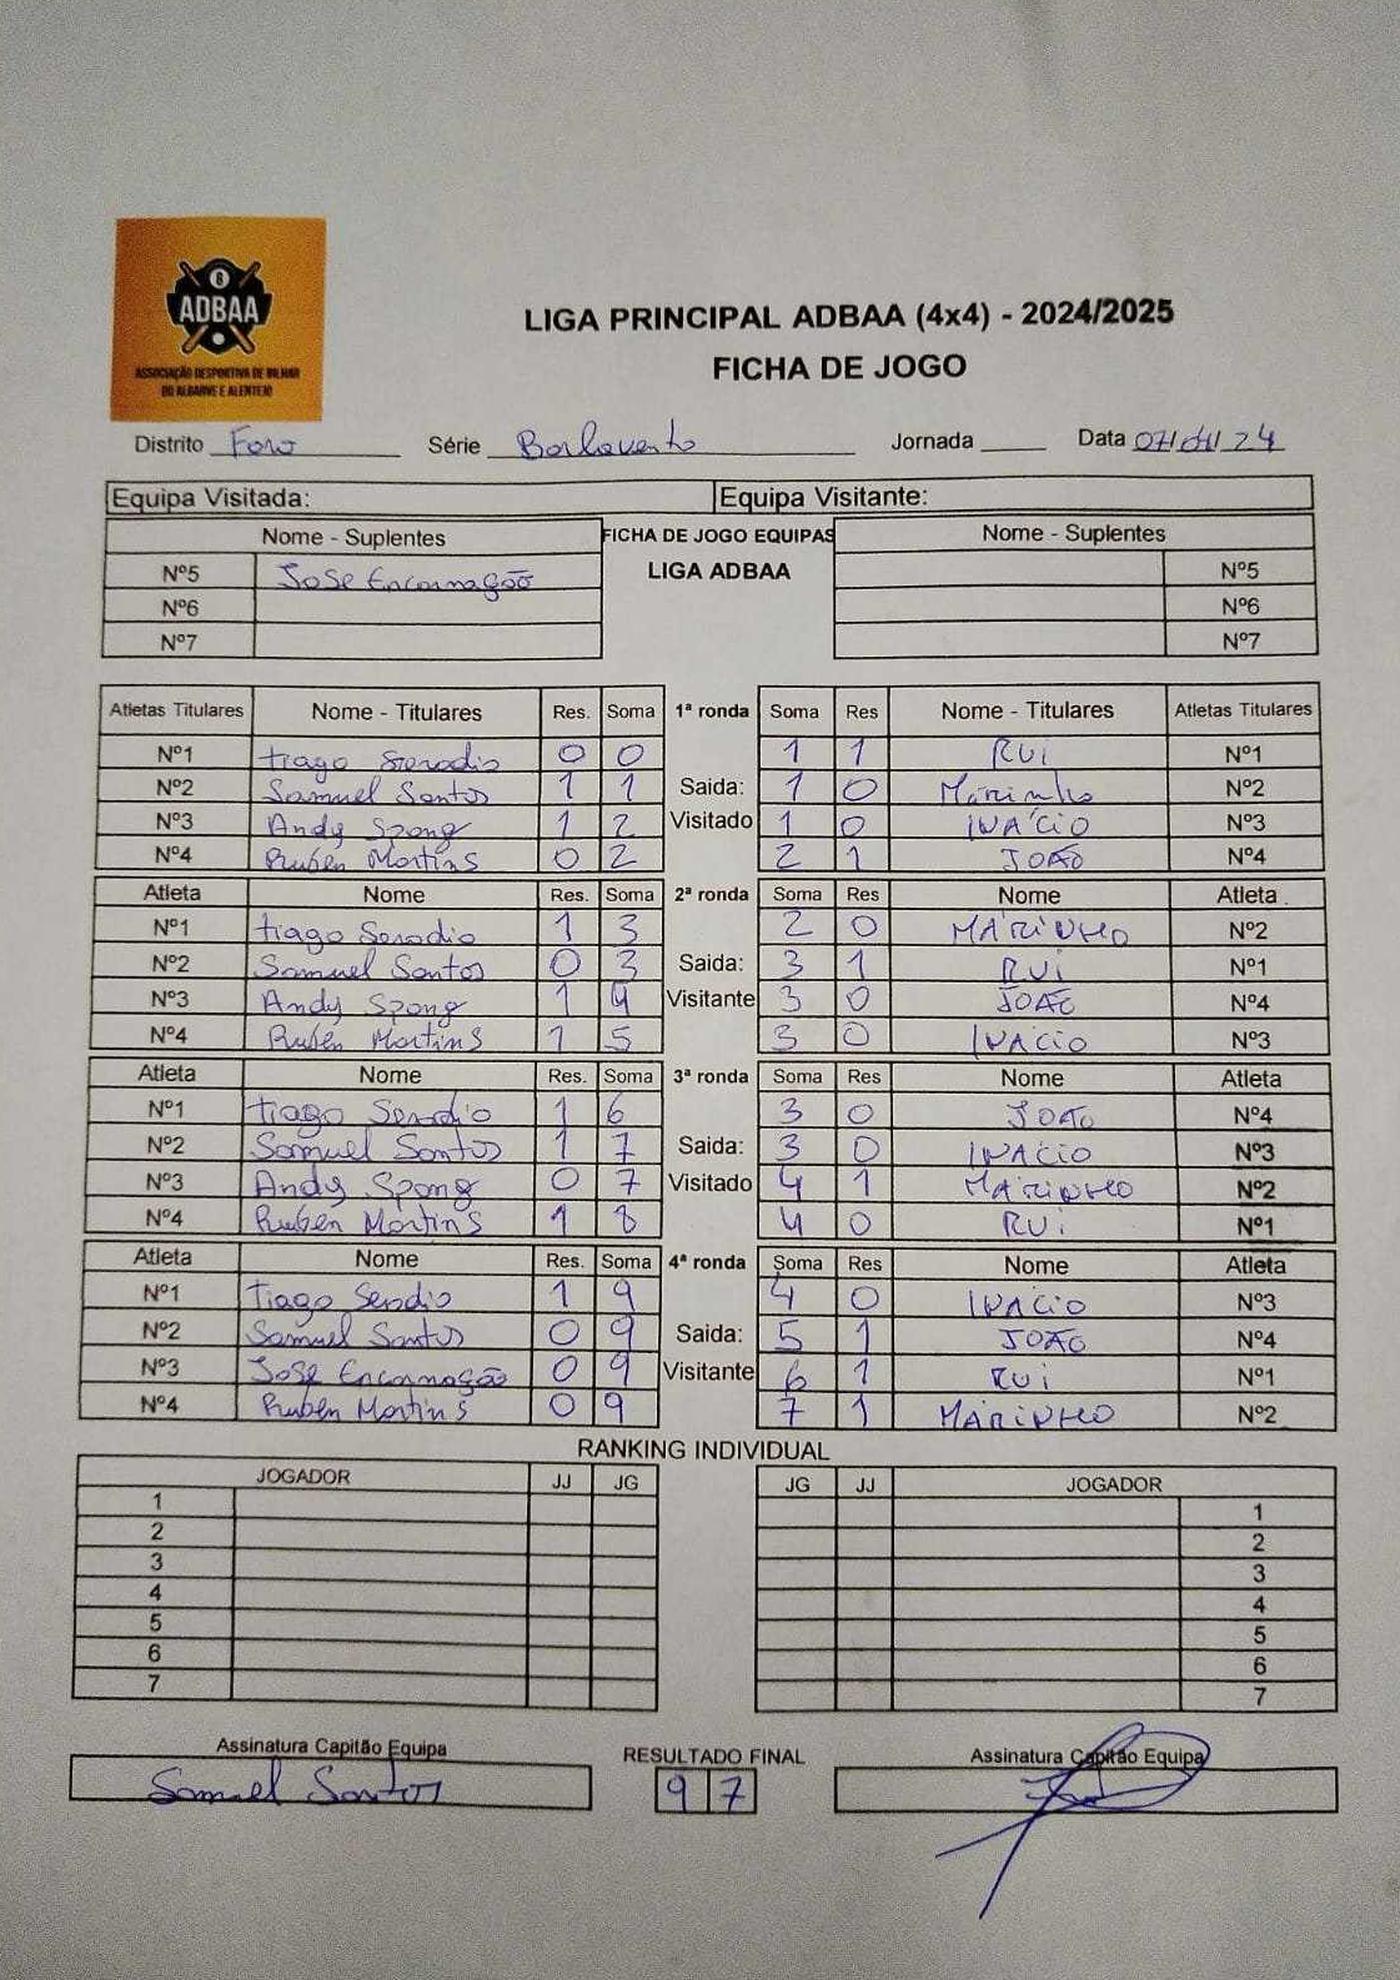 8
ADBAA
ASSOCIAÇÃO DESPORTIVA DE BILHAR
DO ALGARVE E ALENTEJO
LIGA PRINCIPAL ADBAA (4x4) - 2024/2025
FICHA DE JOGO
Distrito Faro Série Barlavento Jornada Data 07/ /24
Equipa Visitada: Equipa Visitante:
Nome - Suplentes FICHA DE JOGO EQUIPAS Nome - Suplentes
Nº5 José Encarnação LIGA ADBAA Nº5
Nº6 Nº6
Nº7 Nº7
Atletas Titulares Nome - Titulares Res. Soma 1ª ronda Soma Res Nome - Titulares Atletas Titulares
Nº1 Tiago Serodio 0 0 1 1 RUi Nº1
Nº2 Samuel Santos 1 1 Saida: 1 0 Marinho Nº2
Nº3 Andy Spong 1 2 Visitado 1 0 INÁCIO Nº3
Nº4 Rubén Martins 0 2 2 1 JOÃO Nº4
Atleta Nome Res. Soma 2ª ronda Soma Res Nome Atleta
Nº1 Tiago Serodio 1 3 2 0 MARiNHO Nº2
Nº2 Samuel Santos 0 3 Saida: 3 1 RUi Nº1
Nº3 Andy Spong 1 4 Visitante 3 0 JOÃO Nº4
Nº4 Rubén Martins 1 5 3 0 INÁCiO Nº3
Atleta Nome Res. Soma 3ª ronda Soma Res Nome Atleta
Nº1 Tiago Serodio 1 6 3 0 JOÃO Nº4
Nº2 Samuel Santos 1 7 Saida: 3 0 INÁCiO Nº3
Nº3 Andy Spong 0 7 Visitado 4 1 MARiNHO Nº2
Nº4 Rubén Martins 1 8 4 0 RUi Nº1
Atleta Nome Res. Soma 4ª ronda Soma Res Nome Atleta
Nº1 Tiago Serodio 1 9 4 0 INÁCiO Nº3
Nº2 Samuel Santos 0 9 Saida: 5 1 JOÃO Nº4
Nº3 José Encarnação 0 9 Visitante 6 1 RUi Nº1
Nº4 Rubén Martins 0 9 7 1 MARiNHO Nº2
RANKING INDIVIDUAL
JOGADOR JJ JG JG JJ JOGADOR
1 1
2 2
3 3
4 4
5 5
6 6
7 7
Assinatura Capitão Equipa RESULTADO FINAL Assinatura Capitão Equipa
Samuel Santos 9 7